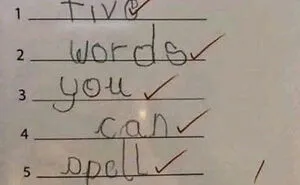 1 five
2 words
3 you
4 can
5 spell